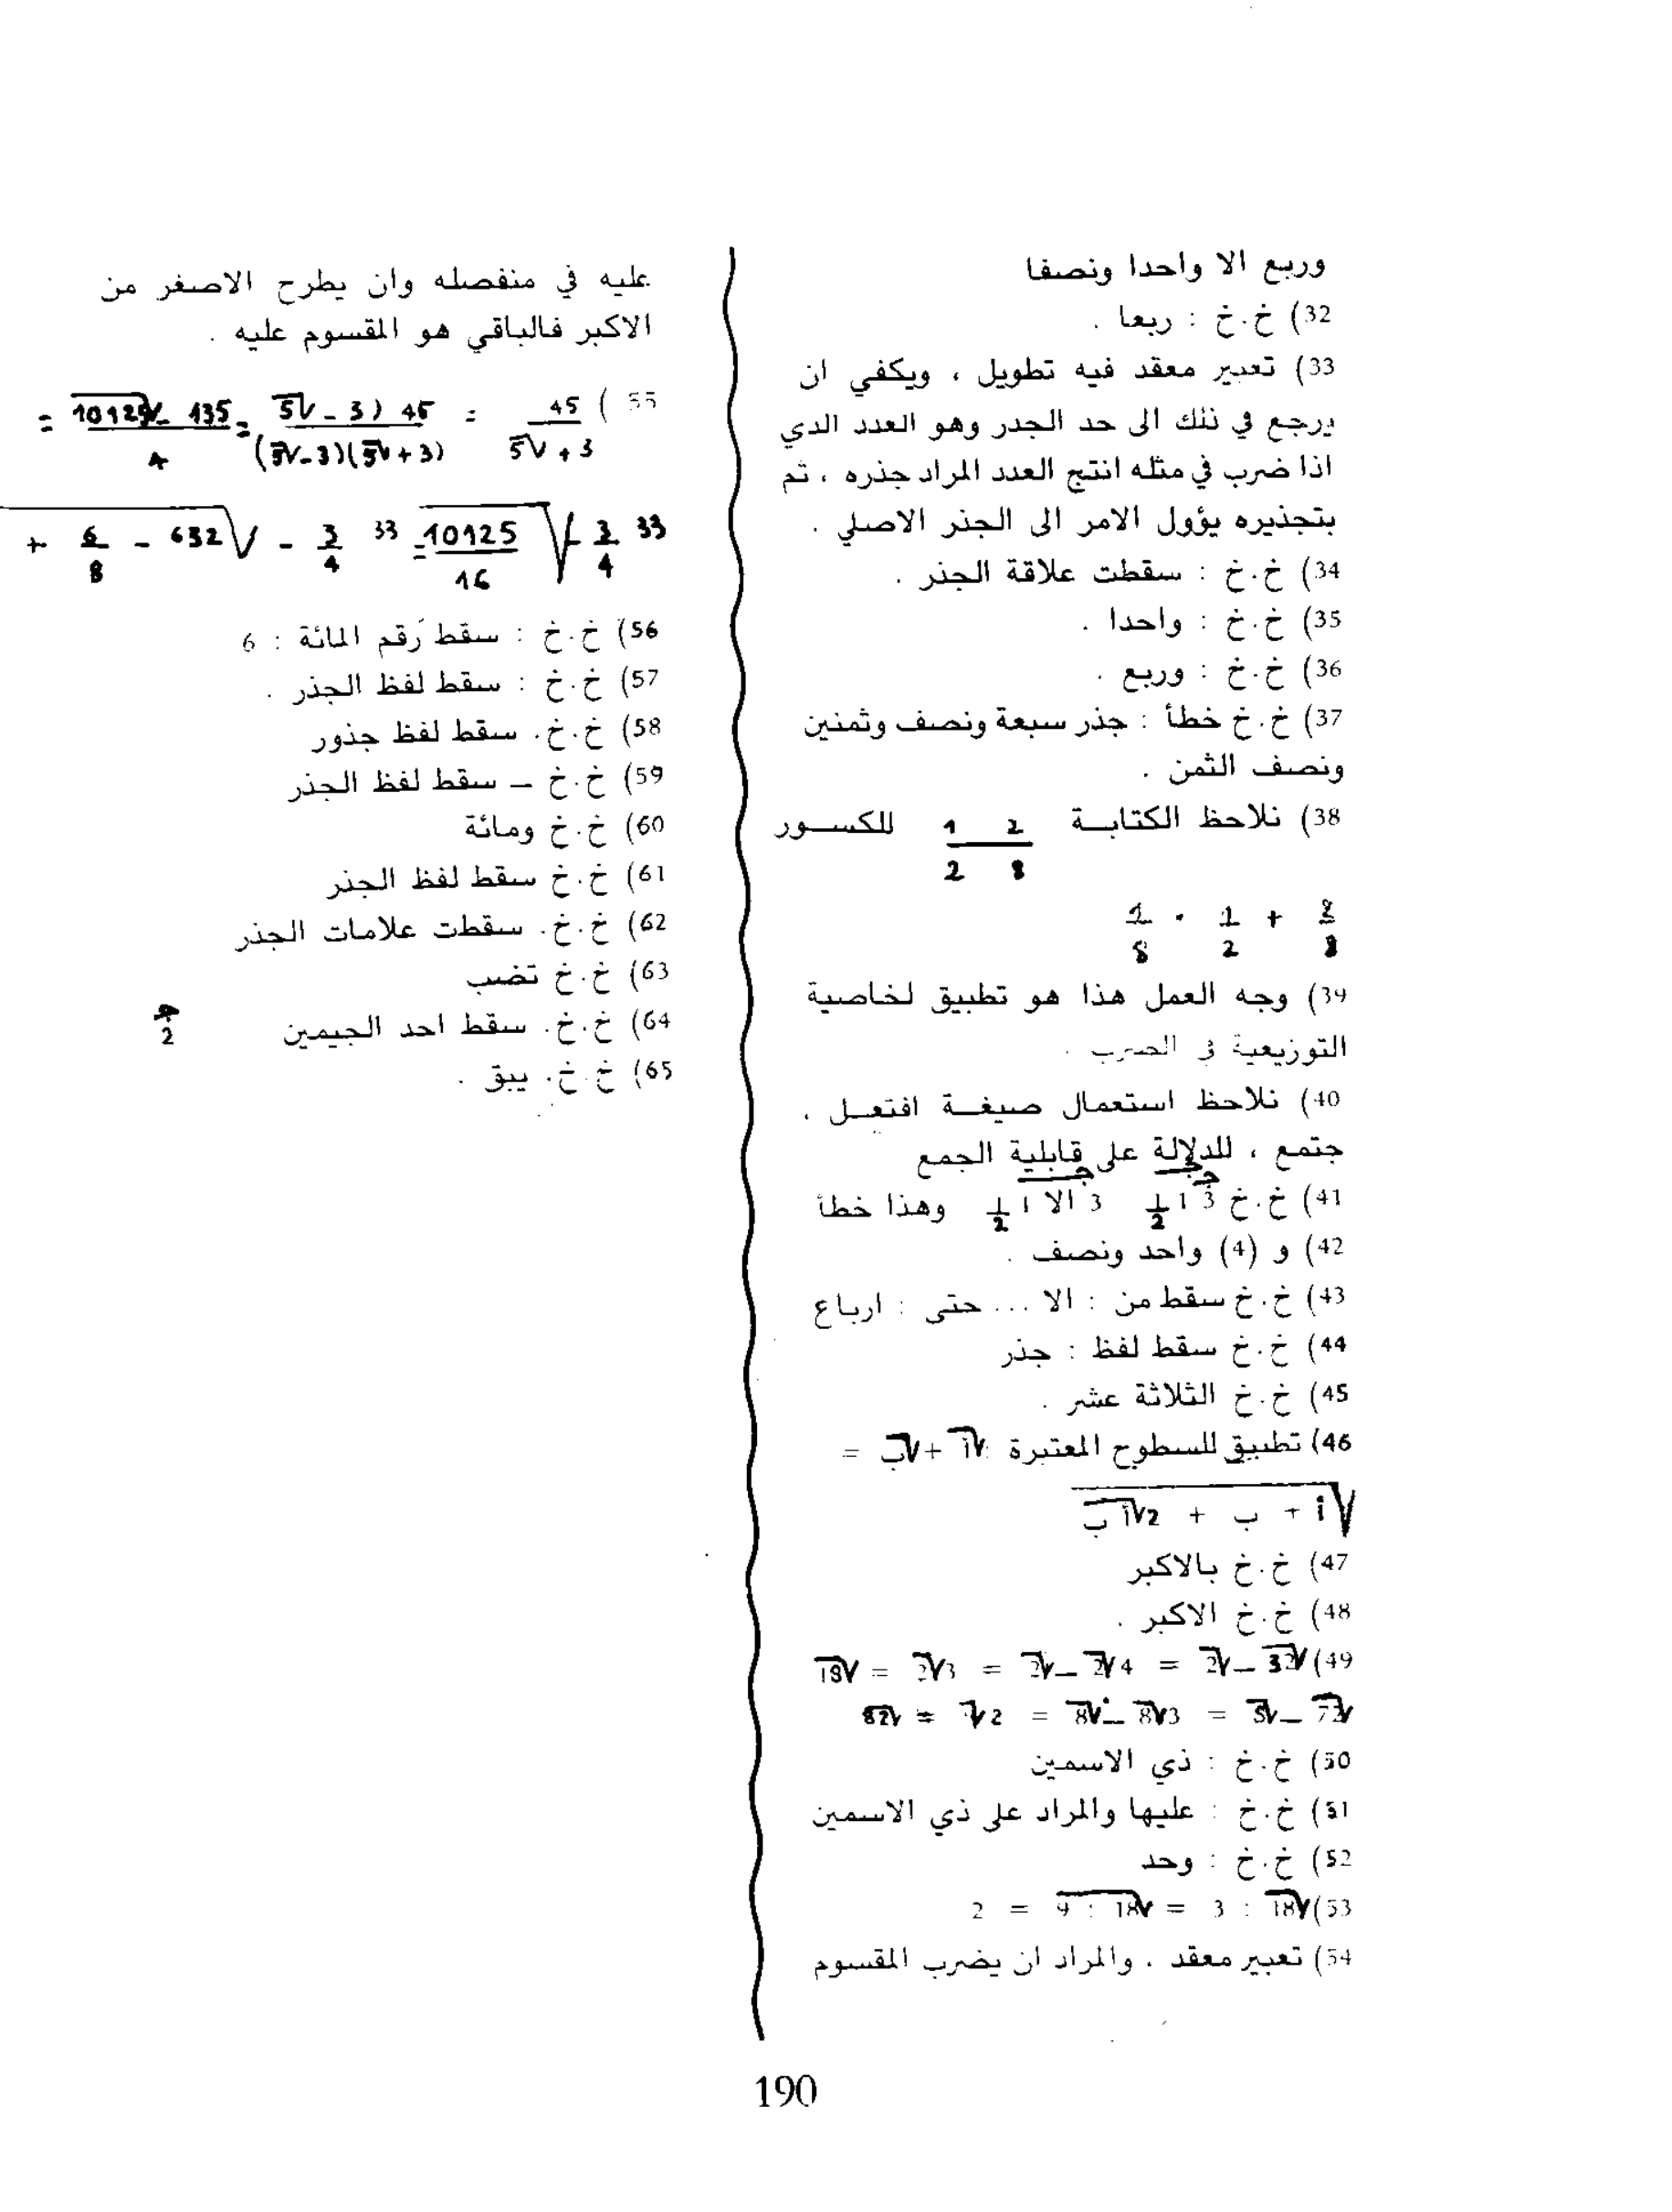 وربع الا واحدا ونصفا
32) خ.خ : ربعا .
33) تعبير معقد فيه تطويل ، ويكفي ان
يرجع في ذلك الى حد الجدر وهو العدد الدي
اذا ضرب في مثله انتج العدد المراد جذره ، ثم
بتجذيره يؤول الامر الى الجذر الاصلي .
34) خ.خ : سقطت علاقة الجذر .
35) خ.خ : واحدا .
36) خ.خ : وربع .
37) خ.خ خطأ : جذر سبعة ونصف وثمنين
ونصف الثمن .
38) نلاحظ الكتابة 1/2 2/8 للكسور
2/8 + 1/2 . 1/8
39) وجه العمل هذا هو تطبيق لخاصية
التوزيعية في الضرب .
40) نلاحظ استعمال صيغة افتعل ،
جتمع ، للدلالة على قابلية الجمع
41) خ.خ 3 1 1/2 3 الا 1 1/2 وهذا خطأ
42) و (4) واحد ونصف .
43) خ.خ سقط من : الا ... حتى : ارباع
44) خ.خ سقط لفظ : جذر
45) خ.خ الثلاثة عشر .
46) تطبيق للسطوح المعتبرة : √أ + √ب =
√(أ + ب + 2√أ ب)
47) خ.خ بالاكبر
48) خ.خ الاكبر .
49) √32 – √2 = 4√2 – √2 = 3√2 = √18
√72 – √8 = 3√8 – √8 = 2√ = √82
50) خ.خ : ذي الاسمين
51) خ.خ : عليها والمراد على ذي الاسمين
52) خ.خ : وحد
53) √18 : 3 = √18 : 9 = 2
54) تعبير معقد . والمراد ان يضرب المقسوم
عليه في منفصله وان يطرح الاصغر من
الاكبر فالباقي هو المقسوم عليه .
55) 45 / (3 + √5) = 45 (3 – √5) / (3 + √5)(3 – √5) = 135 – √10125 / 4 =
33 3/4 – √10125/16 = 33 3/4 – √632 – 6/8 +
56) خ.خ : سقط رقم المائة : 6
57) خ.خ : سقط لفظ الجذر .
58) خ.خ. سقط لفظ جذور
59) خ.خ – سقط لفظ الجذر
60) خ.خ ومائة
61) خ.خ سقط لفظ الجذر
62) خ.خ. سقطت علامات الجذر
63) خ.خ تضب
64) خ.خ. سقط احد الجيمين
65) خ.خ. يبق .
190